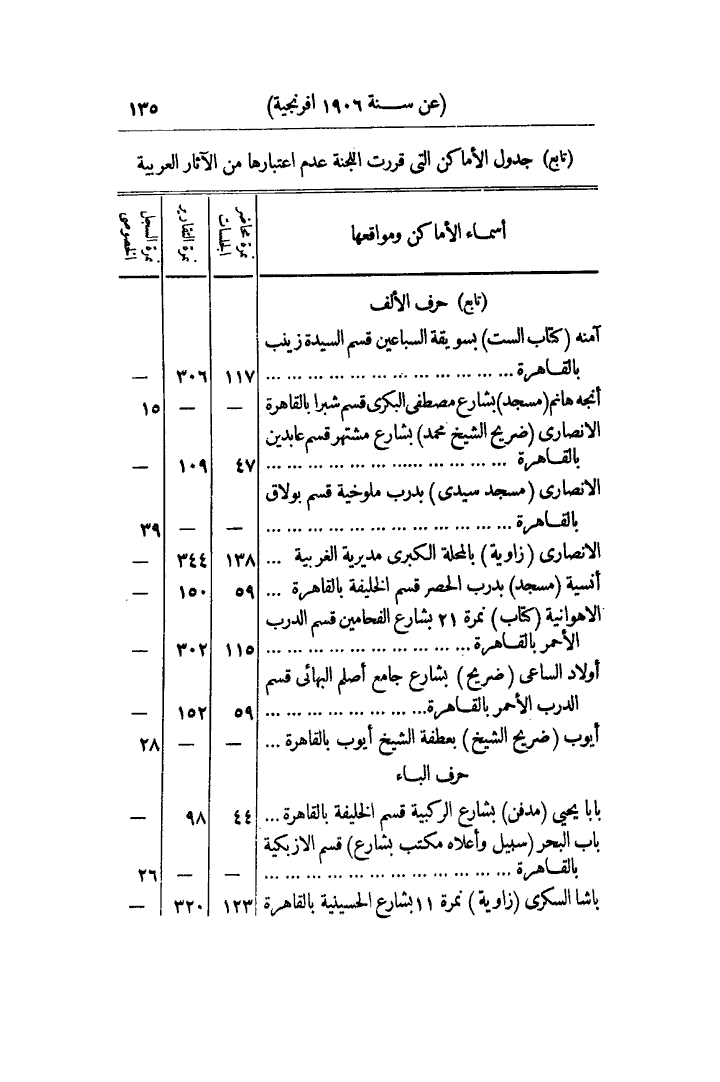 (عن سنة ١٩٠٦ افرنجية) ١٣٥
(تابع) جدول الأماكن التى قررت اللجنة عدم اعتبارها من الآثار العربية
أسماء الأماكن ومواقعها | نمرة محاضر الجلسات | نمرة التقارير | نمرة السجل الخصوصى
(تابع) حرف الألف
آمنه (كتاب الست) بسويقة السباعين قسم السيدة زينب
بالقاهرة ... ... ... ... ... ... ... ... ... ... ... ... ١١٧ ٣٠٦ —
أنجه هانم (مسجد) بشارع مصطفى البكرى قسم شبرا بالقاهرة — — ١٥
الانصارى (ضريح الشيخ محمد) بشارع مشتهر قسم عابدين
بالقاهرة ... ... ... ... ... ... ... ... ... ... ... ٤٧ ١٠٩ —
الانصارى (مسجد سيدى) بدرب ملوخية قسم بولاق
بالقاهرة ... ... ... ... ... ... ... ... ... ... ... ... — — ٣٩
الانصارى (زاوية) بالمحلة الكبرى مديرية الغربية ... ١٣٨ ٣٤٤ —
أنسية (مسجد) بدرب الحصر قسم الخليفة بالقاهرة ... ٥٩ ١٥٠ —
الاهوانية (كتاب) نمرة ٢١ بشارع الفحامين قسم الدرب
الأحمر بالقاهرة ... ... ... ... ... ... ... ... ... ... ١١٥ ٣٠٢ —
أولاد الساعى (ضريح) بشارع جامع أصلم البهائى قسم
الدرب الأحمر بالقاهرة ... ... ... ... ... ... ... ... ٥٩ ١٥٢ —
أيوب (ضريح الشيخ) بعطفة الشيخ أيوب بالقاهرة ... — — ٢٨
حرف الباء
بابا يحيى (مدفن) بشارع الركبية قسم الخليفة بالقاهرة ... ٤٤ ٩٨ —
باب البحر (سبيل وأعلاه مكتب بشارع) قسم الازبكية
بالقاهرة ... ... ... ... ... ... ... ... ... ... ... ... — — ٢٦
باشا السكرى (زاوية) نمرة ١١ بشارع الحسينية بالقاهرة ١٢٣ ٣٢٠ —